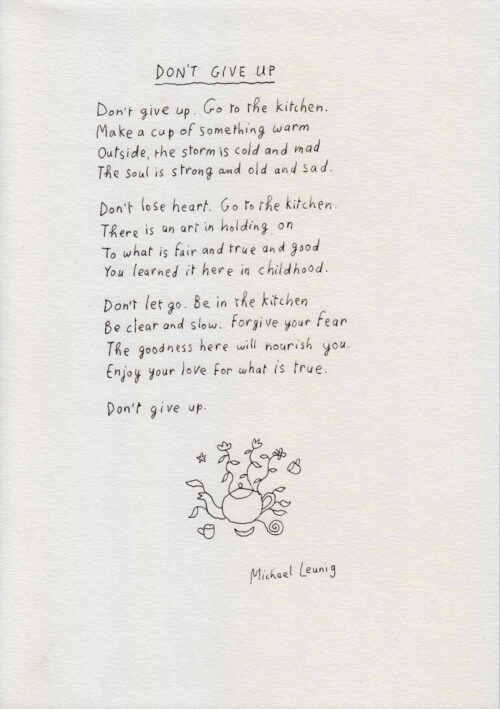 DON'T GIVE UP
Don't give up. Go to the kitchen.
Make a cup of something warm
Outside, the storm is cold and mad
The soul is strong and old and sad.
Don't lose heart. Go to the kitchen.
There is an art in holding on
To what is fair and true and good
You learned it here in childhood.
Don't let go. Be in the kitchen
Be clear and slow. Forgive your fear
The goodness here will nourish you.
Enjoy your love for what is true.
Don't give up.
Michael Leunig